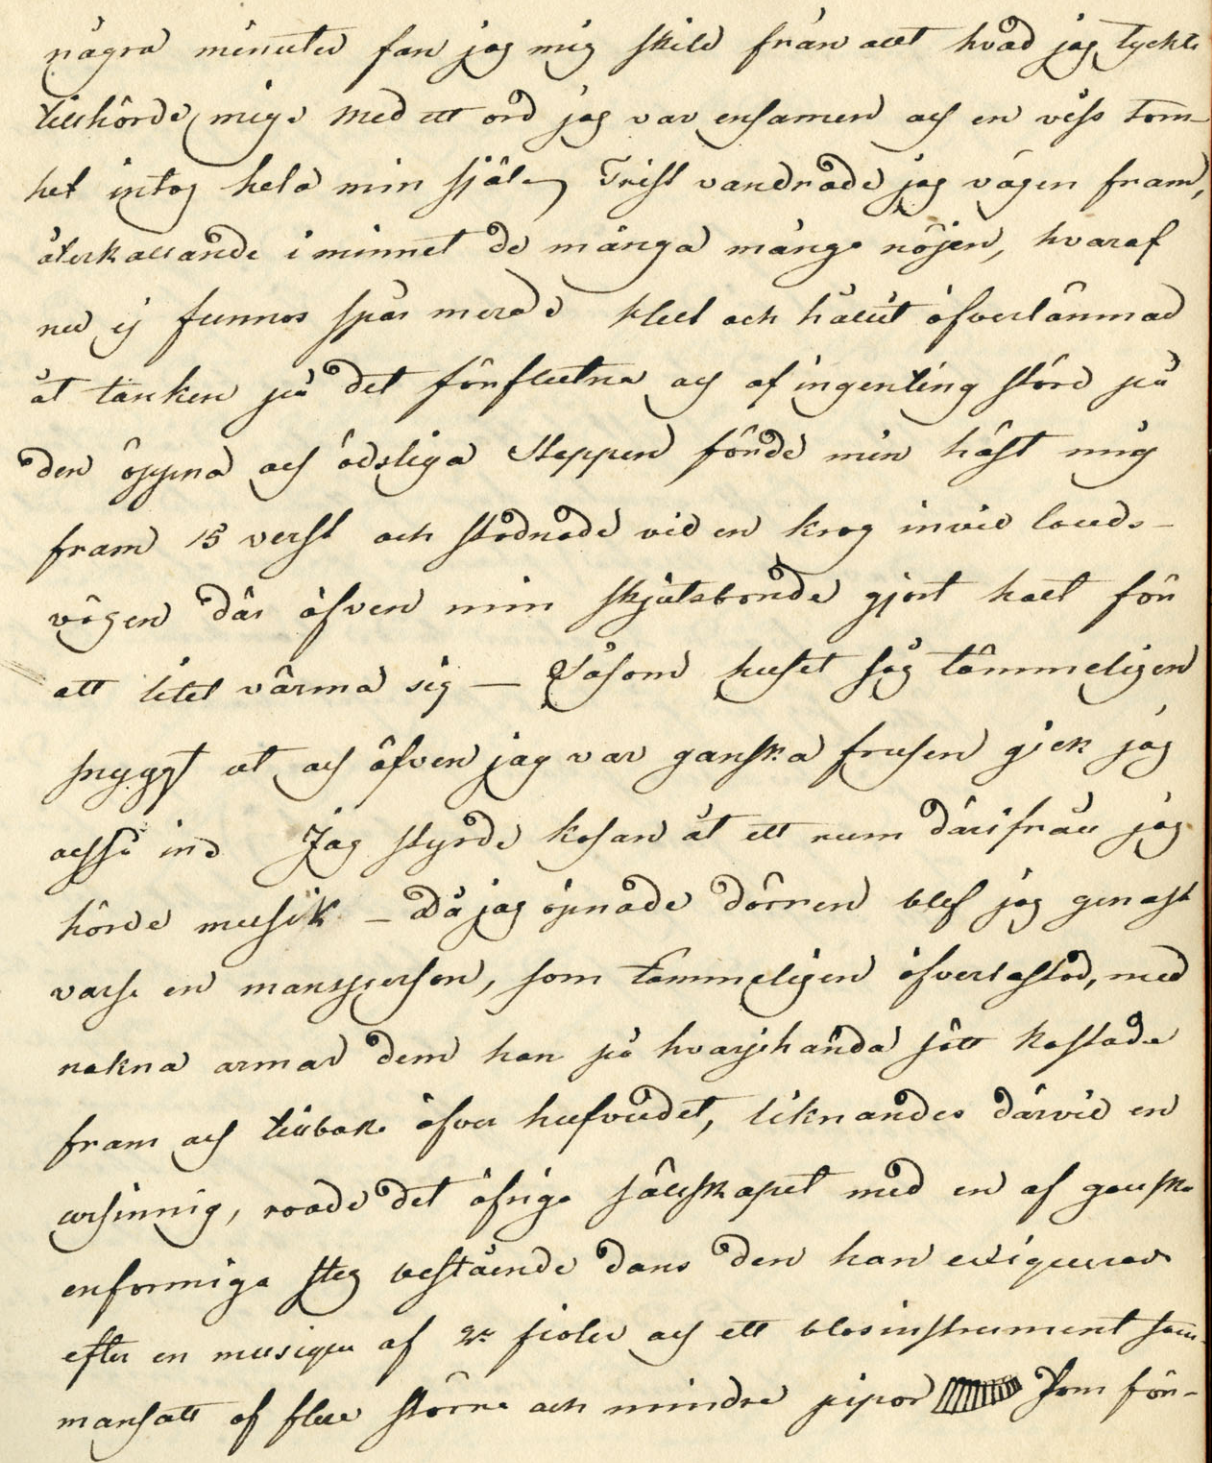 några minuter fan jag mig skild från allt hvad jag tyckte
tillhörde mig. Med ett ord jag var ensamen och en viss tom-
het intog hela min själ. Trist vandrade jag vägen fram,
återkallande i minnet de många många nöjen, hvaraf
nu ej funnos spår mera. och öfverlämnad
åt tanken på det förflutna och af ingenting störd på
den öppna och ödsliga Steppen förde min häst mig
fram 15 verst och stodnade vid en krog invid lands-
vägen där äfven min skjutsbonde gjort halt för
att litet värma sig — Såsom huset såg tämmeligen
snyggt ut och äfven jag var ganska frusen gick jag
ind Jag styrde kosan åt ett rum därifrån jag
hörde musik – Då jag öpnade dörren blef jag genast
varse en mansperson, som tämmeligen öfverlastad, med
nakna armar dem han på hvarjehanda sätt kastade
fram och tillbaka öfver hufvudet, liknandes därvid en
ursinnig, roade det öfriga sällskapet med en af ganska
enformiga steg bestående dans den han exiqverade
efter en musique af 2ne fioler och ett blosinstrument sam-
mansatt af flere större och mindre pipor som för-